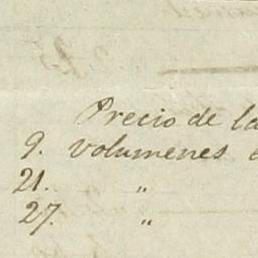 Precio de la
9. volumenes
21. "
27. "